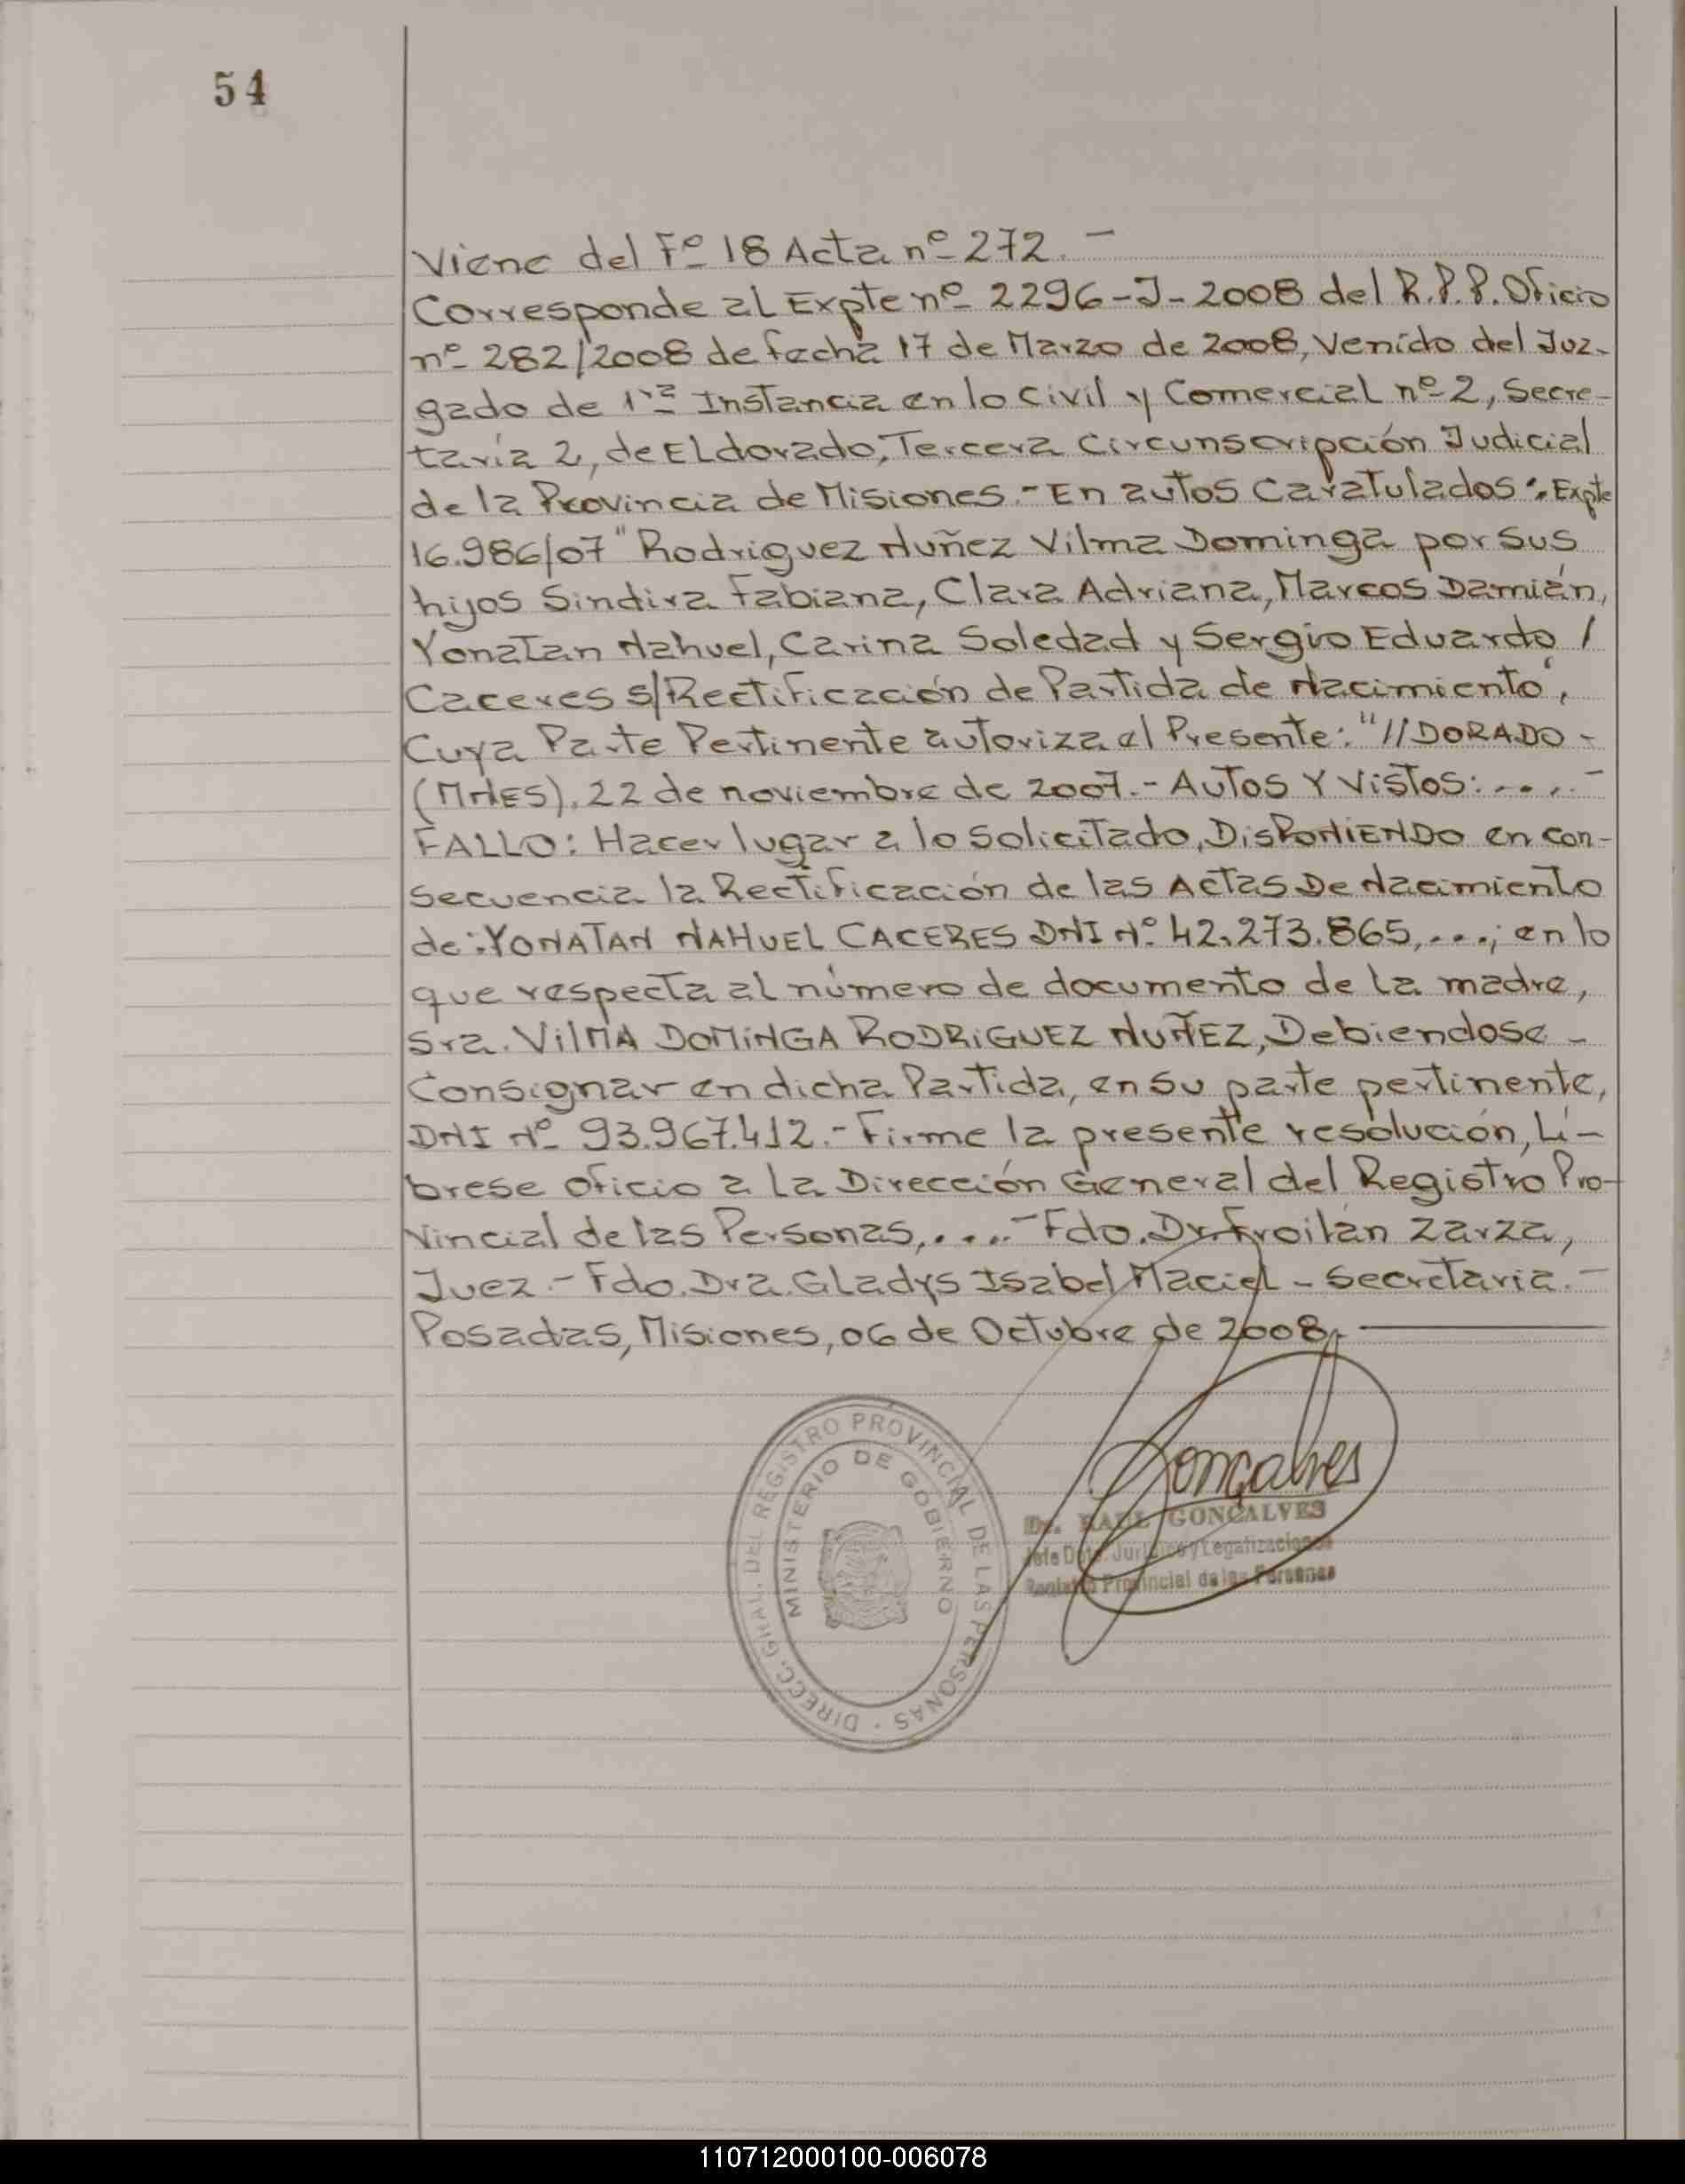 54
Viene del Fº 18 Acta nº 272.-
Corresponde al Expte nº 2296-J-2008 del R.P.P. Oficio
nº 282/2008 de fecha 17 de Marzo de 2008, Venido del Juz-
gado de 1ra Instancia en lo Civil y Comercial nº 2, Secre-
taria 2, de Eldorado, Tercera Circunscripción Judicial
de la Provincia de Misiones.- En autos Caratulados: Expte
16.986/07 "Rodriguez Nuñez Vilma Dominga por sus
hijos Sindira Fabiana, Clara Adriana, Marcos Damián,
Yonatan Nahuel, Carina Soledad y Sergio Eduardo /
Caceres s/Rectificación de Partida de Nacimiento",
Cuya Parte Pertinente autoriza el Presente: "//DORADO -
(MNES), 22 de noviembre de 2007.- AUTOS Y VISTOS: ..... -
FALLO: Hacer lugar a lo Solicitado, DISPONIENDO en con-
secuencia la Rectificación de las Actas De Nacimiento
de: YONATAN NAHUEL CACERES DNI Nº 42.273.865, ...; en lo
que respecta al número de documento de la madre,
Sra. VILMA DOMINGA RODRIGUEZ NUÑEZ, Debiendose -
Consignar en dicha Partida, en su parte pertinente,
DNI Nº 93.967.412.- Firme la presente resolución, Li-
brese oficio a la Dirección General del Registro Pro-
Vincial de las Personas, .... - Fdo. Dr. Froilán Zarza,
Juez.- Fdo. Dra. Gladys Isabel Maciel - Secretaria.-
Posadas, Misiones, 06 de Octubre de 2008.-
DIRECC. GRAL. DEL REGISTRO PROVINCIAL DE LAS PERSONAS
MINISTERIO DE GOBIERNO
Goncalves
Dr. RAUL GONCALVES
Jefe Dpto. Jurídico y Legalizaciones
Registro Provincial de las Personas
110712000100-006078